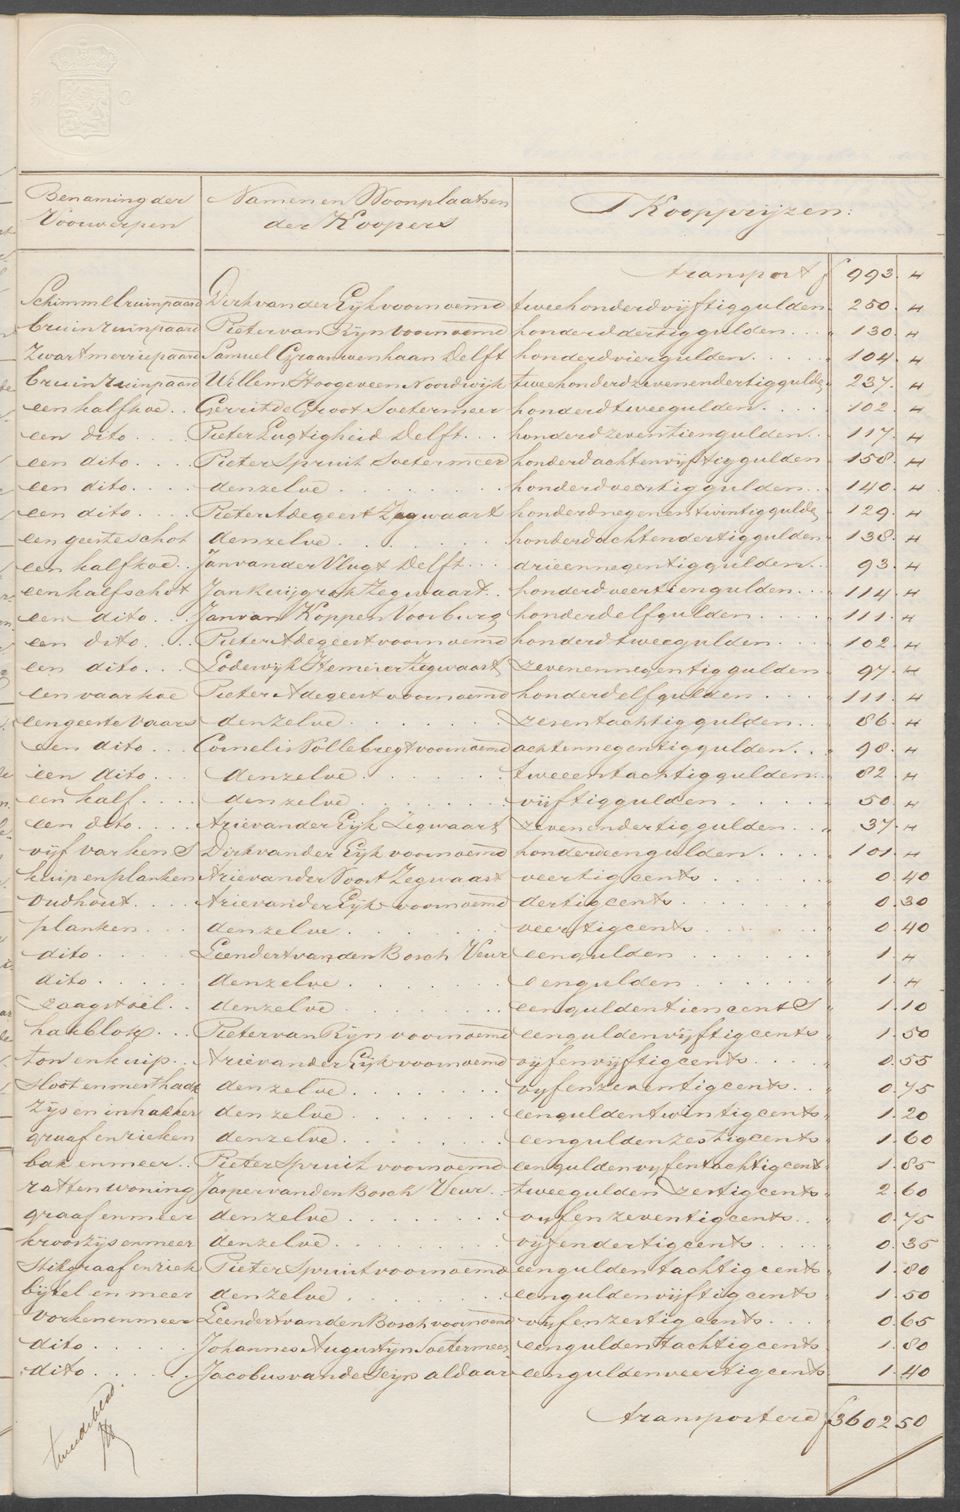 50 C
Benaming der Voorwerpen | Namen en Woonplaatsen der Koopers | Koopprijzen:
transport f 993. "
Schimmelruinpaard | Dirk van der Eijk voornoemd | tweehonderd vijftig gulden | 250. "
bruin ruinpaard | Pieter van Rijn voornoemd | honderd dertig gulden | 130. "
Zwart merriepaard | Samuel Graauwenhaan Delft | honderd vier gulden | 104. "
bruin ruinpaard | Willem Hoogeveen Noordwijk | tweehonderd zevenendertig guld | 237. "
een halfkoe | Gerrit de Groot Soetermeer | honderd twee gulden | 102. "
een dito | Pieter Lugtigheid Delft | honderd zeventien gulden | 117. "
een dito | Pieter Spruit Soetermeer | honderd achtenvijftig gulden | 158. "
een dito | denzelve | honderd veertig gulden | 140. "
een dito | Pieter Adegeest Zegwaart | honderd negenentwintig guld | 129. "
een geeste schot | denzelve | honderd achtendertig gulden | 138. "
een halfkoe | Jan van der Vlugt Delft | drieennegentig gulden | 93. "
een halfschot | Jan Zegwaart | honderd veertien gulden | 114. "
een dito | Jan van Koppen Voorburg | honderd elf gulden | 111. "
een dito | Pieter Adegeest voornoemd | honderd twee gulden | 102. "
een dito | Lodewijk Zegwaart | zevenennegentig gulden | 97. "
een vaarkoe | Pieter Adegeest voornoemd | honderd elf gulden | 111. "
een geeste vaars | denzelve | zesentachtig gulden | 86. "
een dito | Cornelis Vollebregt voornoemd | achtennegentig gulden | 98. "
een dito | denzelve | tweeentachtig gulden | 82. "
een half | denzelve | vijftig gulden | 50. "
een dito | Arie van der Eijk Zegwaart | zevenendertig gulden | 37. "
vijf varkens | Dirk van der Eijk voornoemd | honderd een gulden | 101. "
kuip en planken | Arie van der Voort Zegwaart | veertig cents | 0.40
oud hout | Arie van der Eijk voornoemd | dertig cents | 0.30
planken | denzelve | veertig cents | 0.40
dito | Leendert van den Bosch Veur | een gulden | 1. "
dito | denzelve | een gulden | 1. "
zaagstoel | denzelve | een gulden tien cents | 1.10
hakblok | Pieter van Rijn voornoemd | een gulden vijftig cents | 1.50
ton en kuip | Arie van der Eijk voornoemd | vijfenvijftig cents | 0.55
sloot en mesthaak | denzelve | vijfenzeventig cents | 0.75
zijs en inhakker | denzelve | een gulden twintig cents | 1.20
graaf en rieken | denzelve | een gulden zestig cents | 1.60
bak en meer | Pieter Spruit voornoemd | een gulden vijfentachtig cent | 1.85
rattenwoning | Jasper van den Bosch Veur | twee gulden zestig cents | 2.60
graaf en meer | denzelve | vijfenzeventig cents | 0.75
krooszijs en meer | denzelve | vijfendertig cents | 0.35
Stikgraaf en riek | Pieter Spruit voornoemd | een gulden tachtig cents | 1.80
bijtel en meer | denzelve | een gulden vijftig cents | 1.50
vorken en meer | Leendert van den Bosch voornoemd | vijfenzestig cents | 0.65
dito | Johannes Augustijn Soetermeer | een gulden tachtig cents | 1.80
dito | Jacobus van der aldaar | een gulden veertig cents | 1.40
transportere f 3602 50
tweede blad